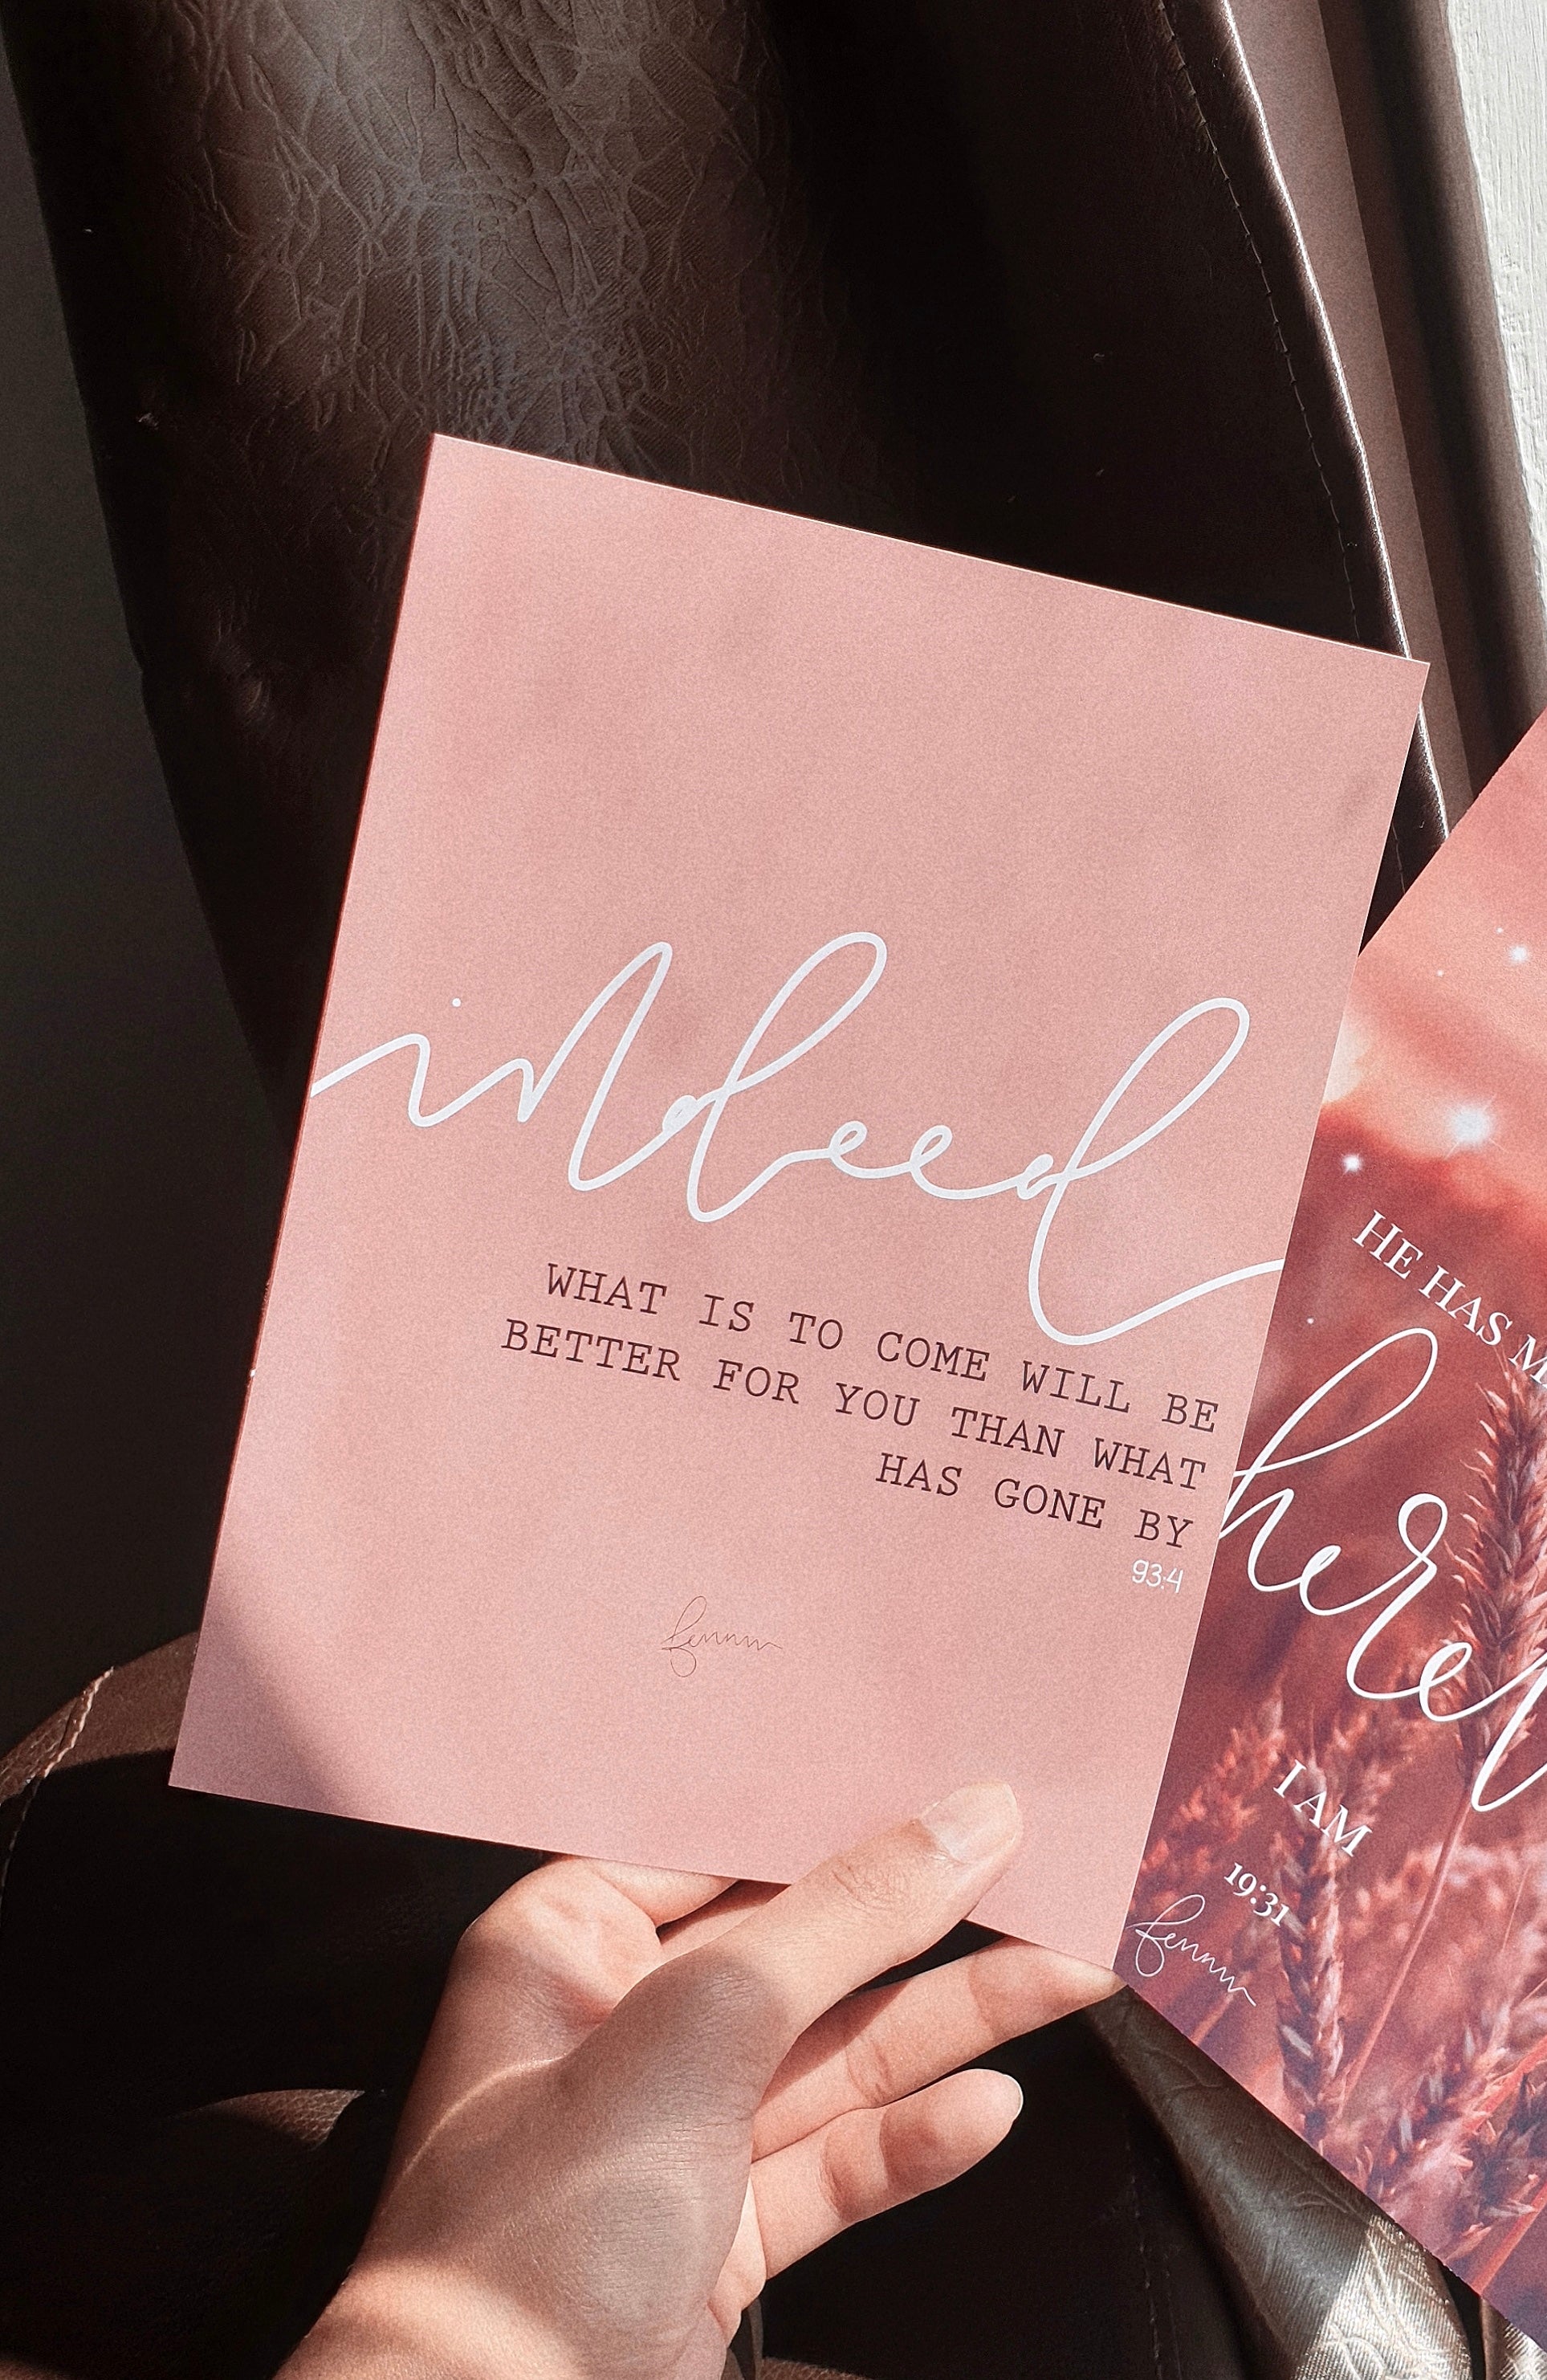 indeed
WHAT IS TO COME WILL BE
BETTER FOR YOU THAN WHAT
HAS GONE BY
93:4
fennw
HE HAS M
herev
I AM
19:31
fennw